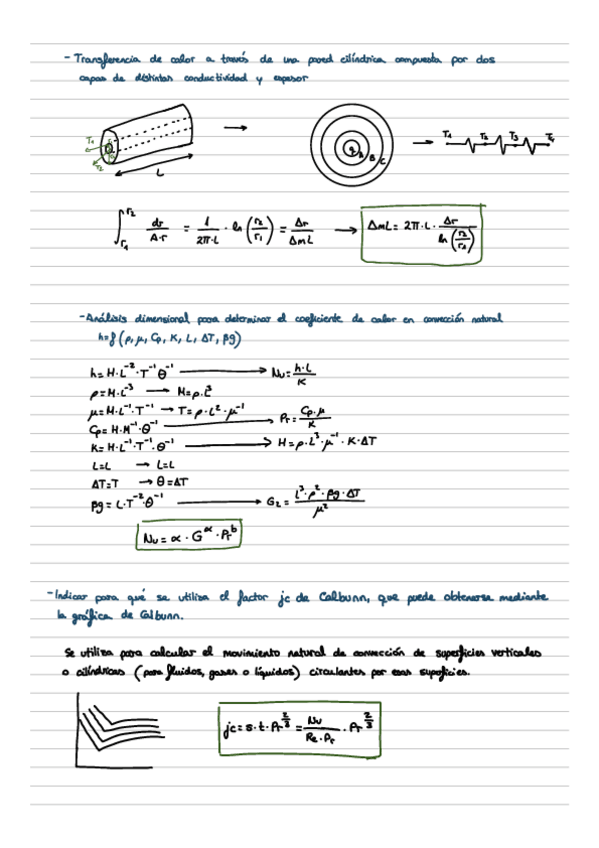 - Transferencia de calor a través de una pared cilíndrica compuesta por dos
capas de distintas conductividad y espesor
T1
r2
L
A B C
T1 T2 T3 T4
∫r1^r2 dr/A·r = 1/2π·L · ln (r2/r1) = Δr/ΔmL → ΔmL = 2π·L · Δr/ln(r2/r1)
- Análisis dimensional para determinar el coeficiente de calor en convección natural
h=f (ρ, μ, Cp, K, L, ΔT, βg)
h = H·L^-2·T^-1 θ^-1 → Nu = h·L/K
ρ = M·L^-3 → M = ρ·L^3
μ = M·L^-1·T^-1 → T = ρ·L^2·μ^-1
Cp = H·M^-1·θ^-1 → Pr = Cp·μ/K
K = H·L^-1·T^-1·θ^-1 → H = ρ·L^3·μ^-1·K·ΔT
L = L → L = L
ΔT = T → θ = ΔT
βg = L·T^-2·θ^-1 → G2 = L^3·ρ^2·βg·ΔT/μ^2
Nu = α·G^α·Pr^b
- Indicar para qué se utiliza el factor jc de Calbunn, que puede obtenerse mediante
la gráfica de Calbunn.
Se utiliza para calcular el movimiento natural de convección de superficies verticales
o cilíndricas (para fluidos, gases o líquidos) circulantes por esas superficies.
jc = s·t·Pr^2/3 = Nu/Re·Pr · Pr^2/3